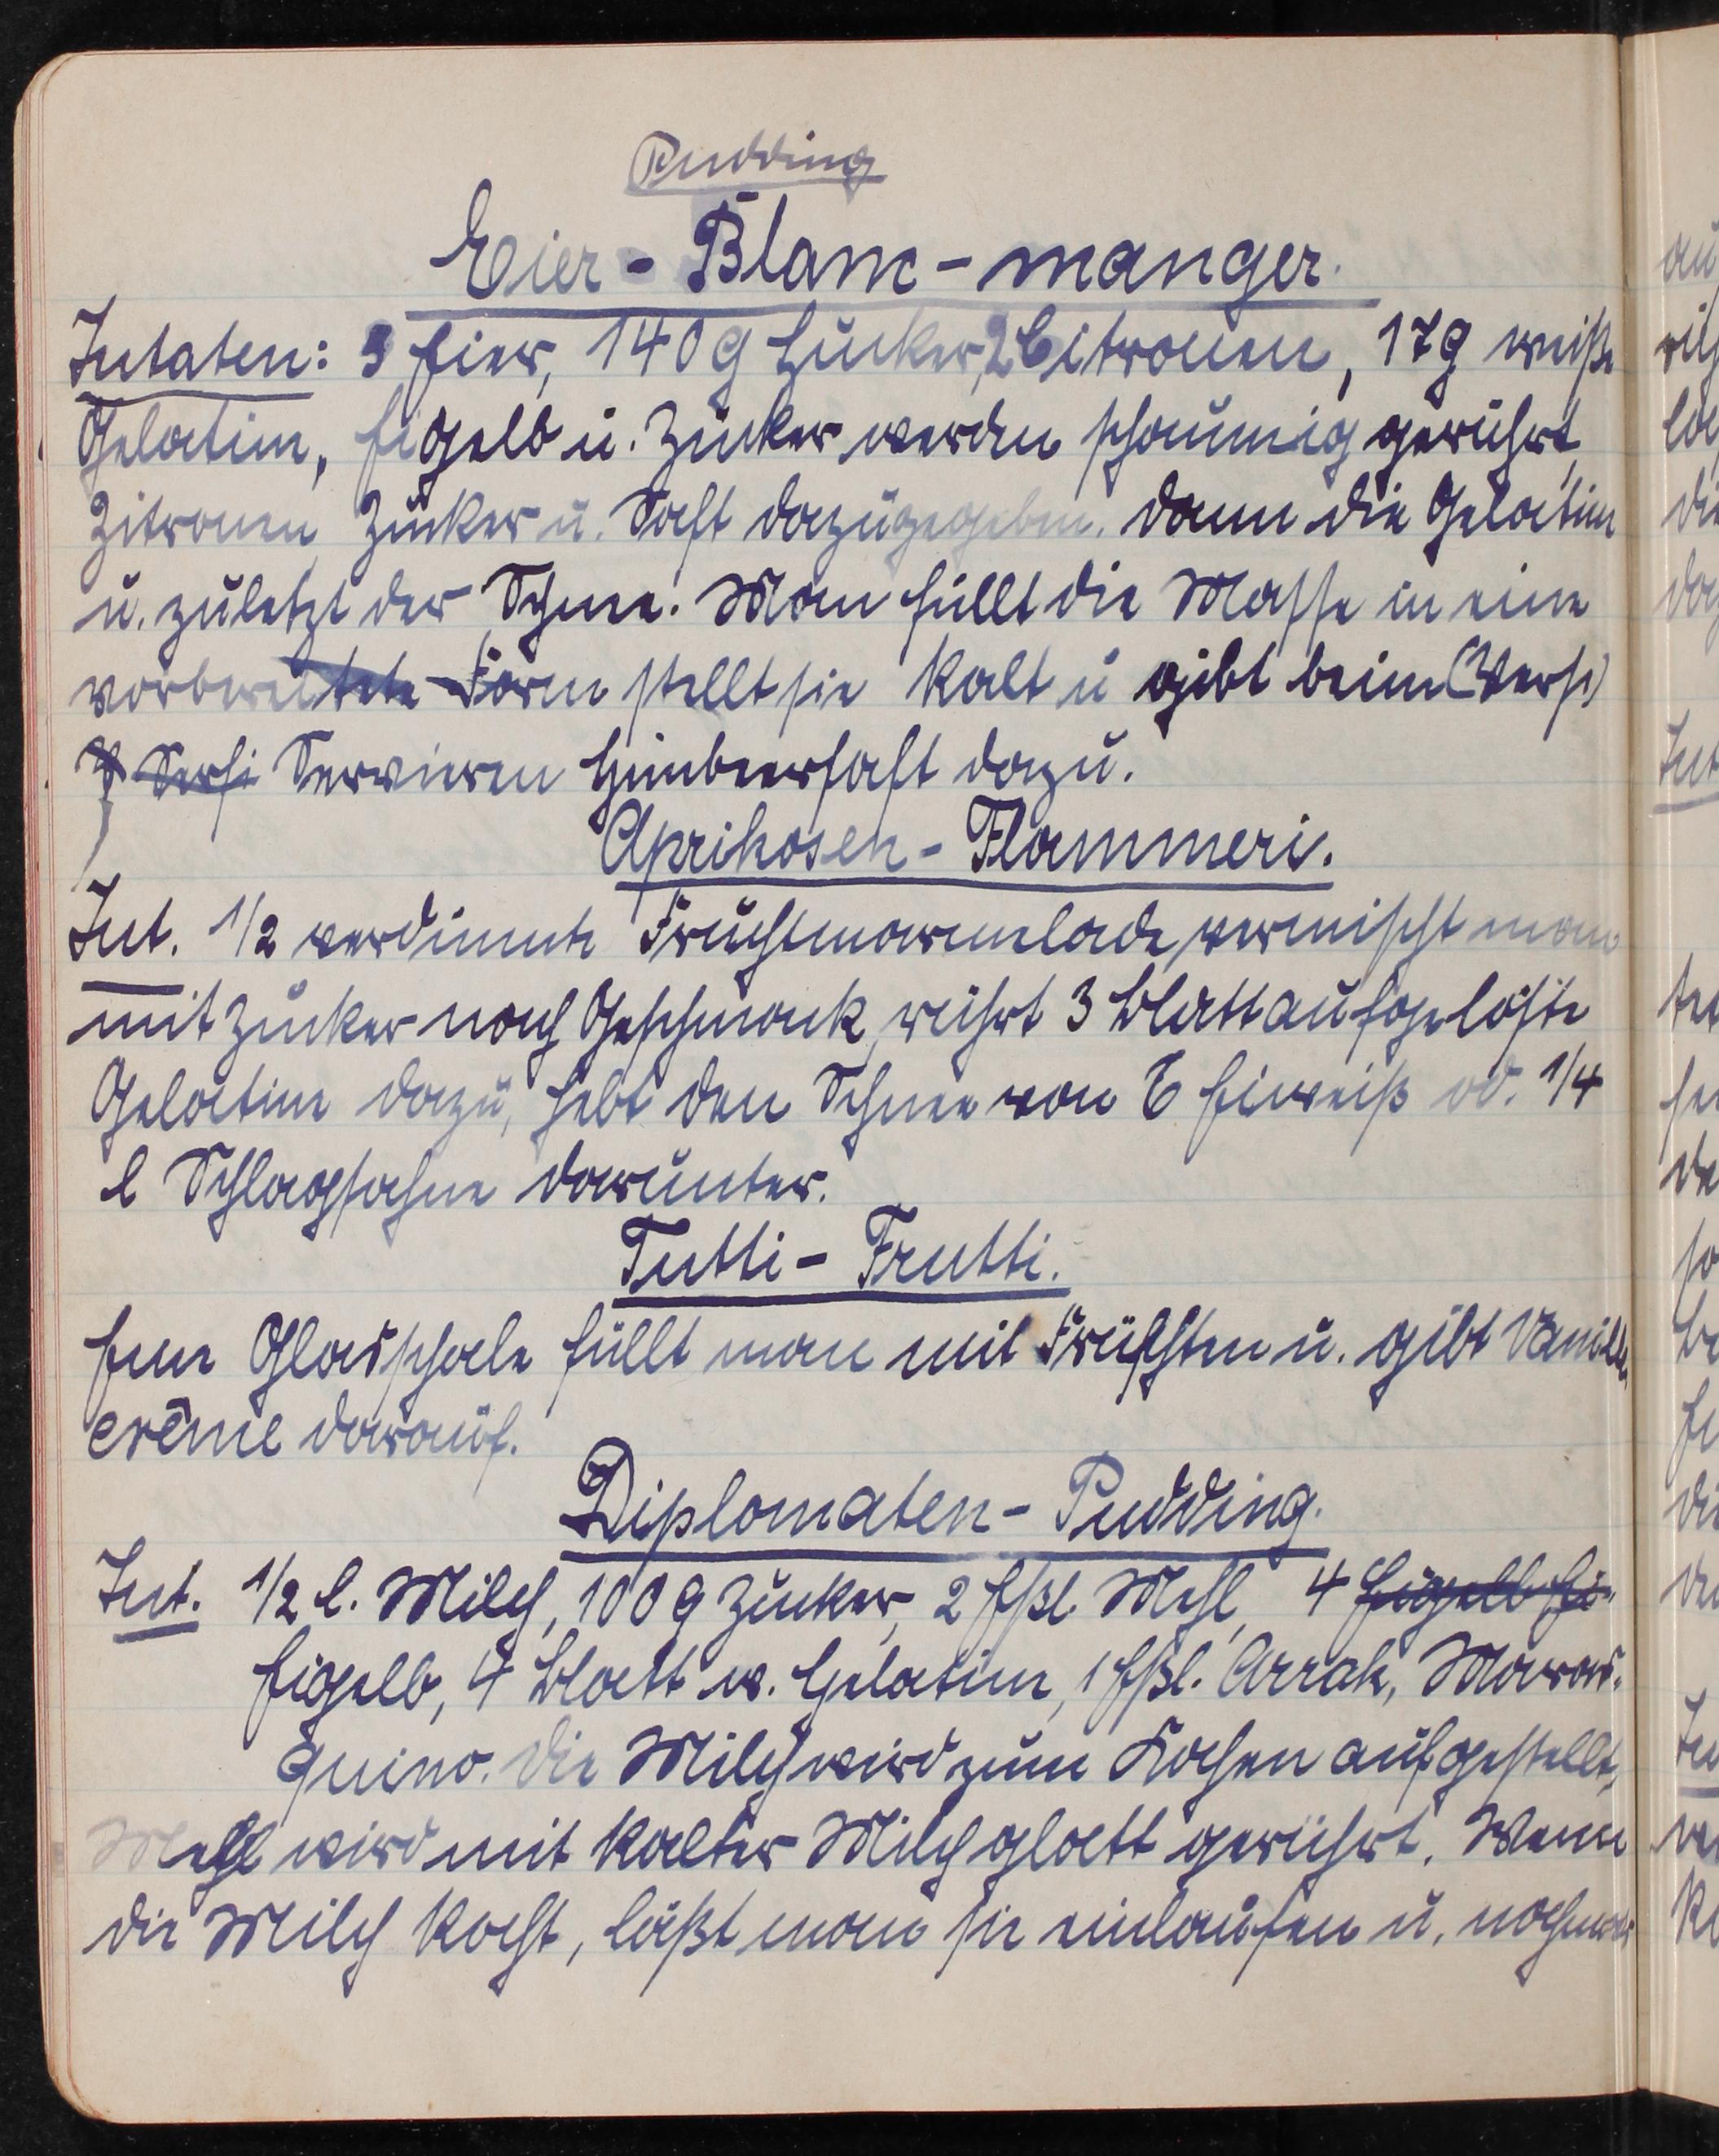 Pudding
Eier - Blanc - manger.
Zutaten: 3 Eier, 140 g Zucker, 2 Citronen, 17 g weiße
Gelatine, Eigelb u. Zucker werden schaumig gerührt,
Zitronen, Zucker u. Saft dazugegeben, dann die Gelatine
u. zuletzt der Schnee. Man füllt die Masse in eine
vorbereitete Form stellt sie kalt u gibt beim (Vers)
Servi Servieren Himbeersaft dazu.
Aprikosen - Flammeri.
Zut. 1/2 verdünnte Fruchtmarmelade, vermischt man
mit Zucker nach Geschmack, rührt 3 Blatt aufgelöste
Gelatine dazu, hebt den Schnee von 6 Eiweiß od. 1/4
l Schlagsahne darunter.
Tutti - Frutti.
Eine Glasschale füllt man mit Früchten u. gibt Vanille
crême darauf.
Diplomaten - Pudding.
Zut. 1/2 l. Milch, 100 g Zucker, 2 Eßl. Mehl, 4 Eigelb Ei
Eigelb, 4 Blatt w. Gelatine, 1 Eßl. Arrak, Maras-
quino. Die Milch wird zum Kochen aufgestellt,
Mehl wird mit kalter Milch glatt gerührt. Wenn
die Milch kocht, läßt man sie einlaufen u. nochmals